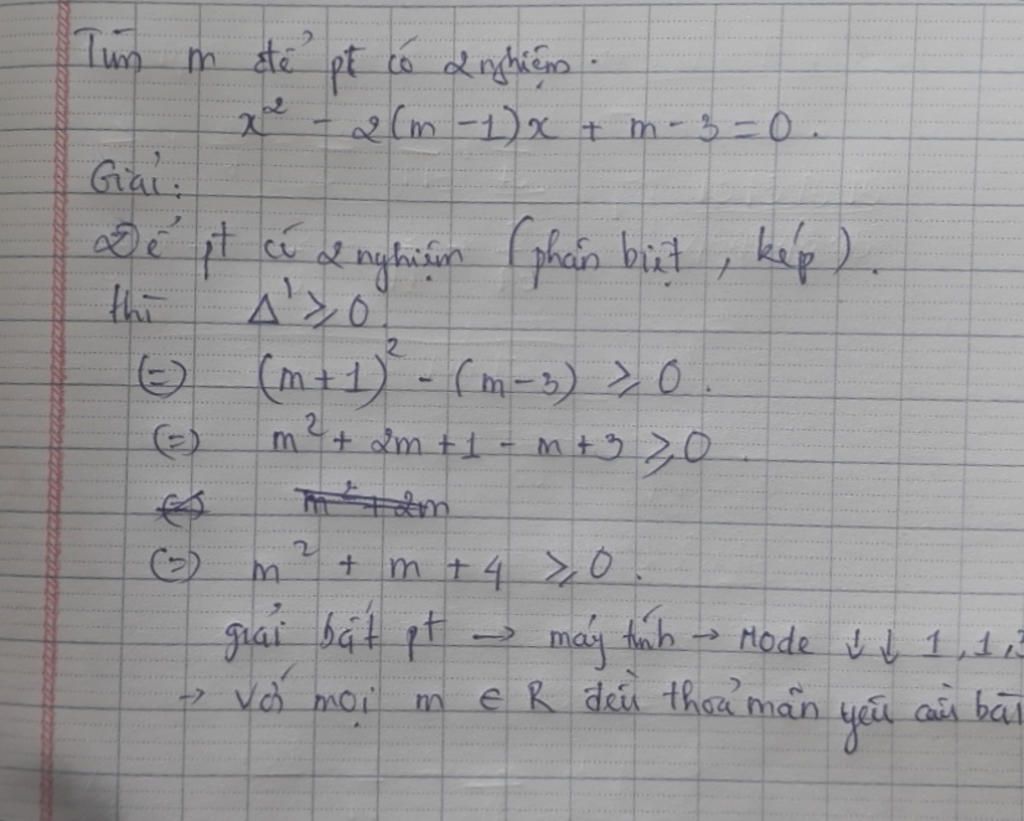 Tìm m để pt có 2 nghiệm.
x² - 2(m - 1)x + m - 3 = 0.
Giải:
Để pt có 2 nghiệm (phân biệt, kép).
thì Δ' ≥ 0
(=) (m + 1)² - (m - 3) ≥ 0.
(=) m² + 2m + 1 - m + 3 ≥ 0.
(=) m² + 2m
(=) m² + m + 4 ≥ 0.
giải bất pt → máy tính → Mode ↓ ↓ 1, 1, 3
→ Với mọi m ∈ R đều thoả mãn yêu cầu bài